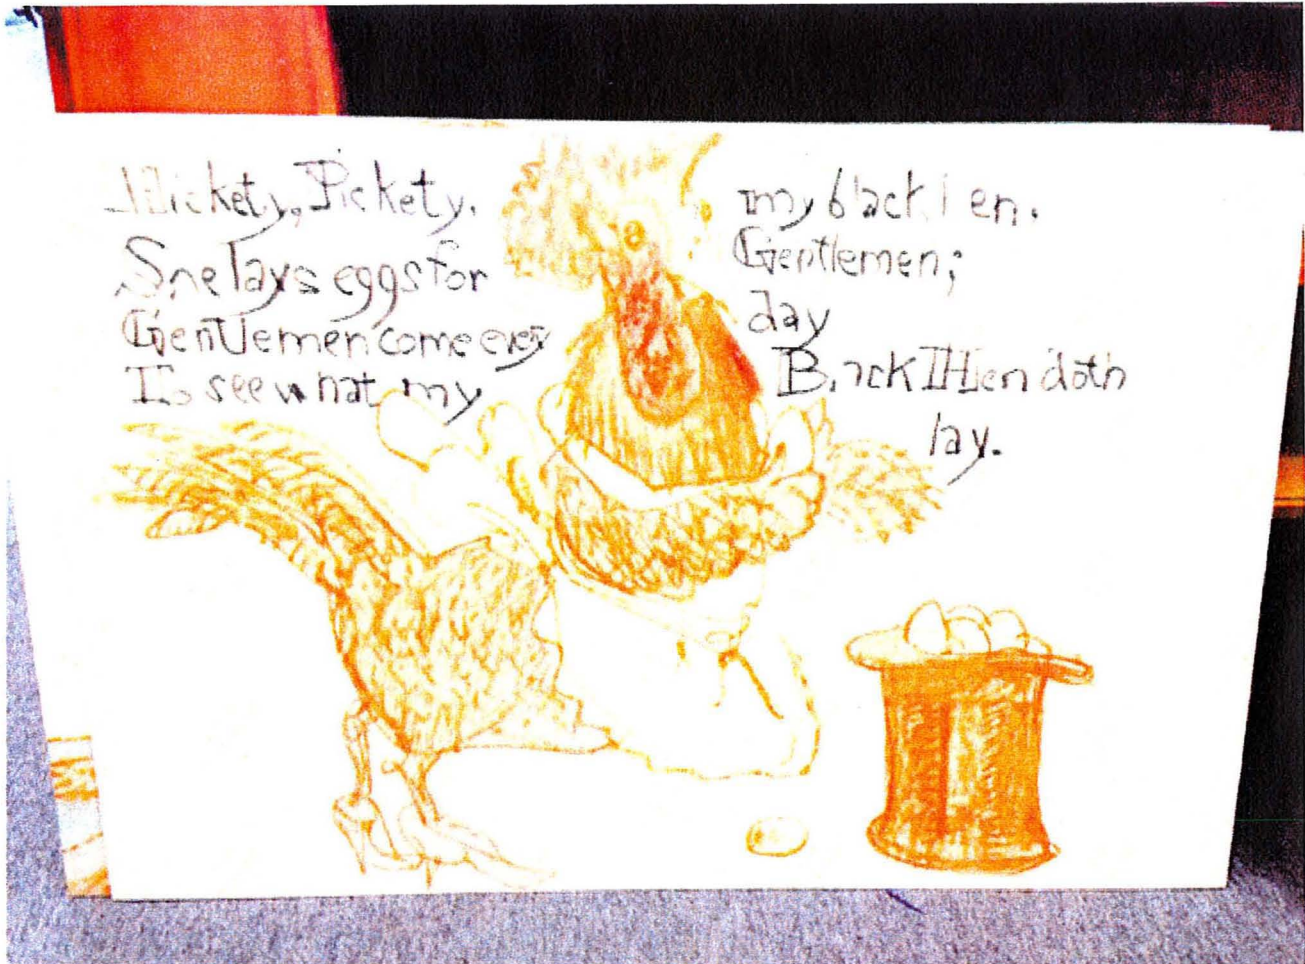 Hickety, Pickety, my black Hen.
She lays eggs for Gentlemen;
Gentlemen come every day
To see what my Black Hen doth
lay.